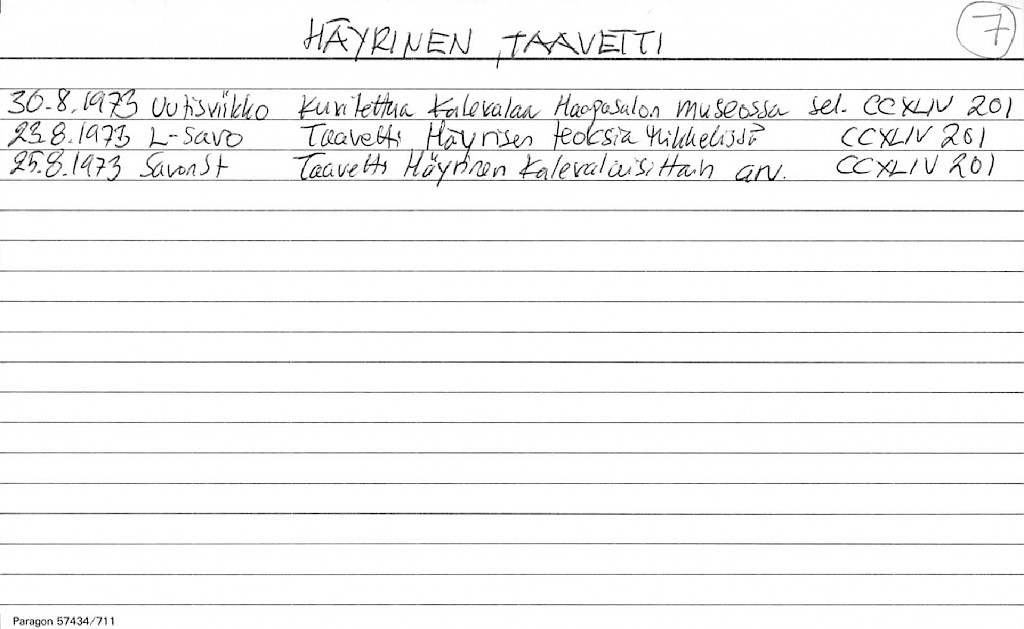 HÄYRINEN, TAAVETTI 7
30.8.1973 Uutisviikko Kuvitettua Kalevalaa Haapasalon museossa sel. CCXLIV 201
23.8.1973 L-Savo Taavetti Häyrisen teoksia Mikkelissä CCXLIV 201
25.8.1973 SavonSt Taavetti Häyrinen arv. CCXLIV 201
Paragon 57434/711